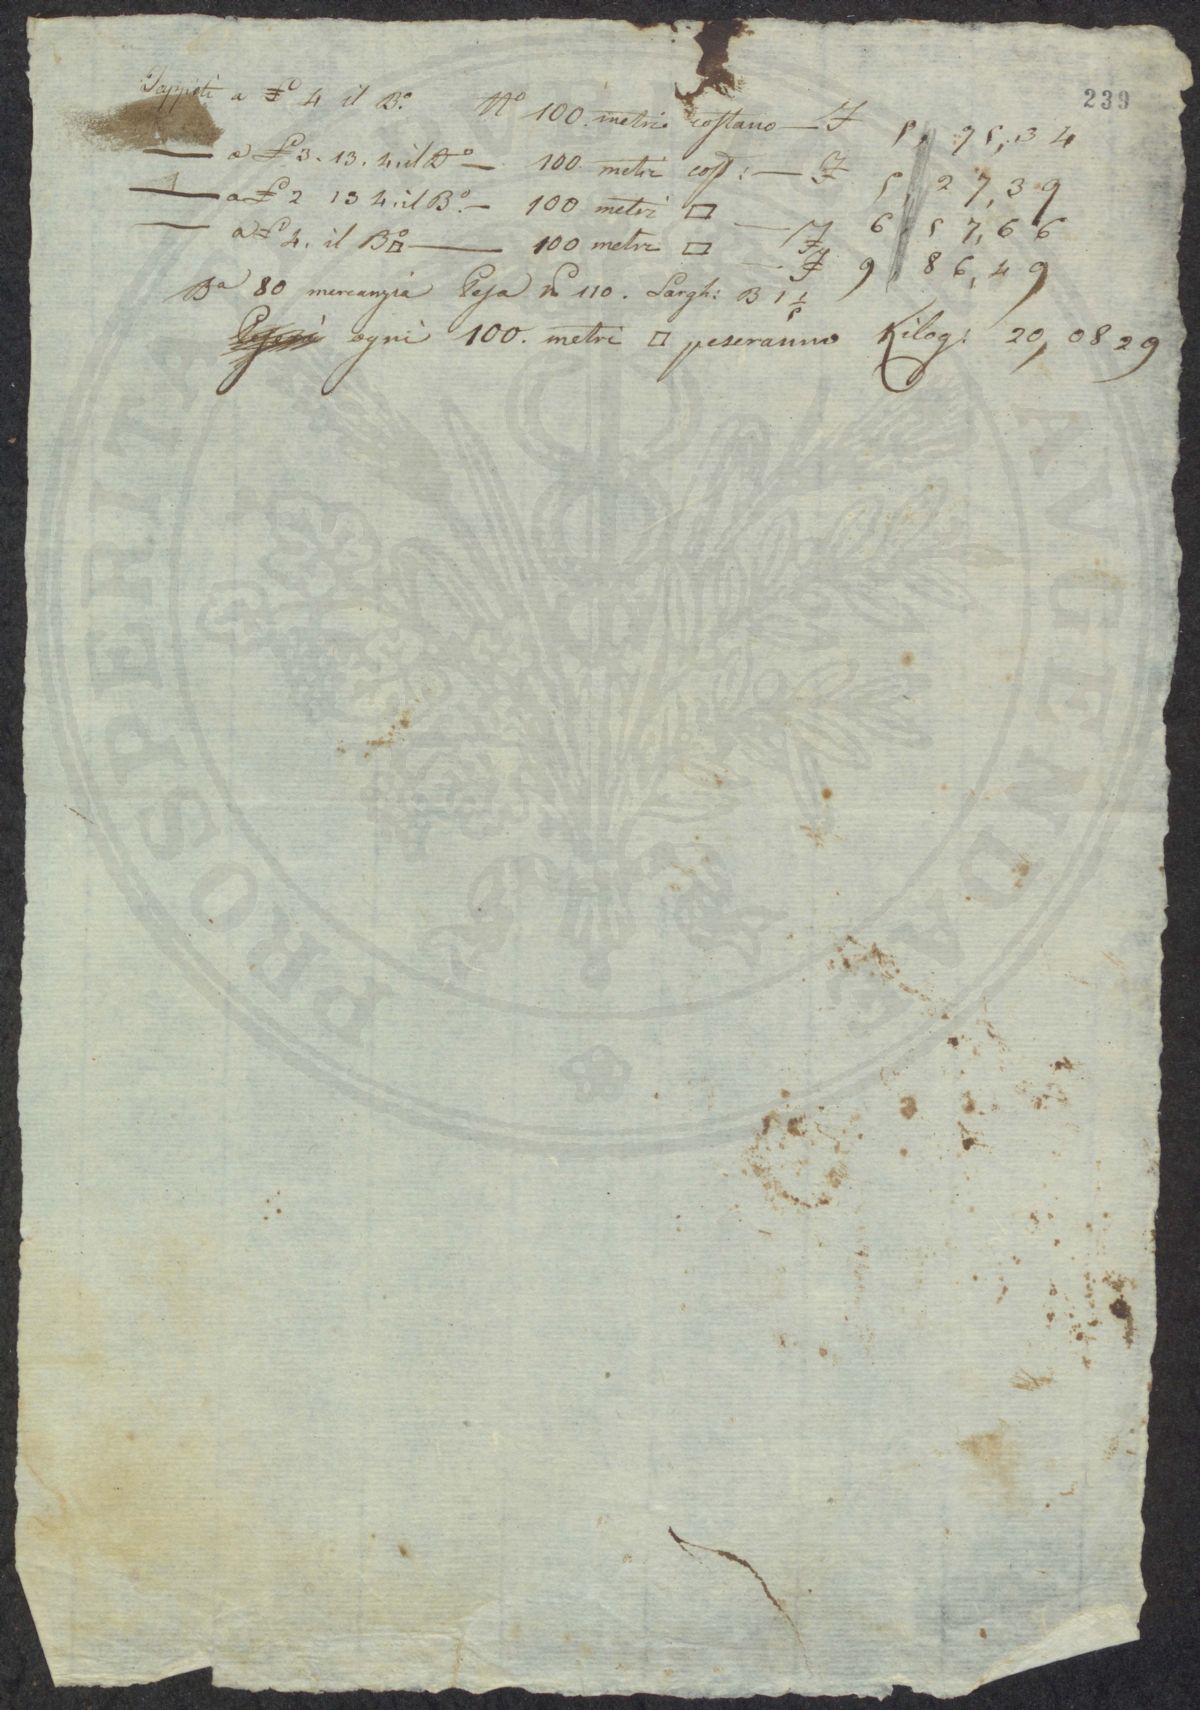 239
Tappeti a £ 4 il B.o No 100. metri costano — F 5, 75,34
— a £ 3. 13. 4. il B.o — 100 metri cost: — F 5, 27,39
— a £ 2 13 4. il B.o — 100 metri □ — F 6 57,66
— a £ 4. il B.o □ — 100 metri □ — F 9, 86,49
B.a 80 mercanzia Pesa 110. Largh: B 1 1/5
ogni 100. metri □ peseranno Kilog: 20,0829
PROSPERITATI AVGENDAE